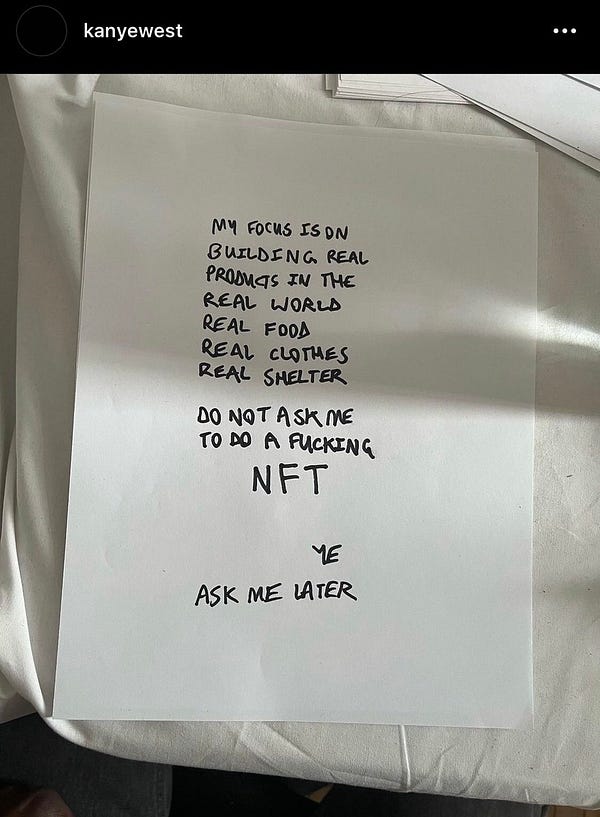 kanyewest
MY FOCUS IS ON
BUILDING REAL
PRODUCTS IN THE
REAL WORLD
REAL FOOD
REAL CLOTHES
REAL SHELTER
DO NOT ASK ME
TO DO A FUCKING
NFT
YE
ASK ME LATER